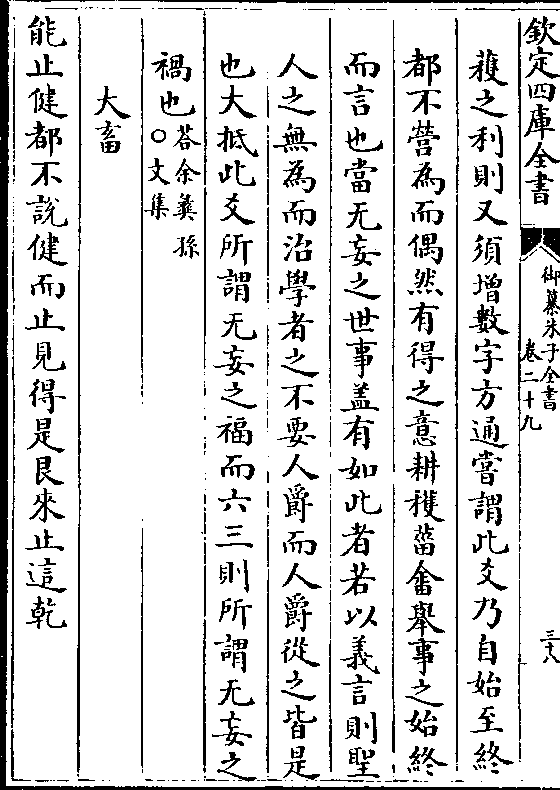 欽定四庫全書
御纂朱子全書
卷二十九
三十八
穫之利則又須增數字方通嘗謂此爻乃自始至終
都不營為而偶然有得之意耕穫菑畬舉事之始終
而言也當无妄之世事盖有如此者若以義言則聖
人之無為而治學者之不要人爵而人爵從之皆是
也大抵此爻所謂无妄之福而六三則所謂无妄之
禍也答余彝孫○文集
大畜
能止健都不說健而止見得是艮來止這乾